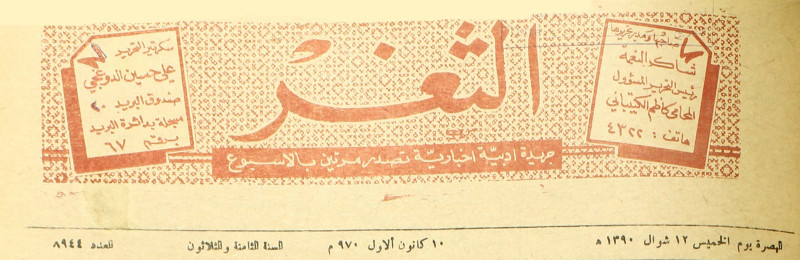 صاحبها ومديرها
شاكر النعمة
رئيس التحرير المسؤول
المحامي كاظم الكتيباني
هاتف : ٤٣٢٢
الثغر
جريدة ادبية اخبارية تصدر مرتين بالاسبوع
سكرتير التحرير
علي حسين الدوغجي
صندوق البريد ٢٠
مسجلة بدائرة البريد
برقم ٦٧
البصرة يوم الخميس ١٢ شوال ١٣٩٠ ه ١٠ كانون ألاول ٩٧٠ م السنة الثامنة والثلاثون العدد ٨٩٤٤